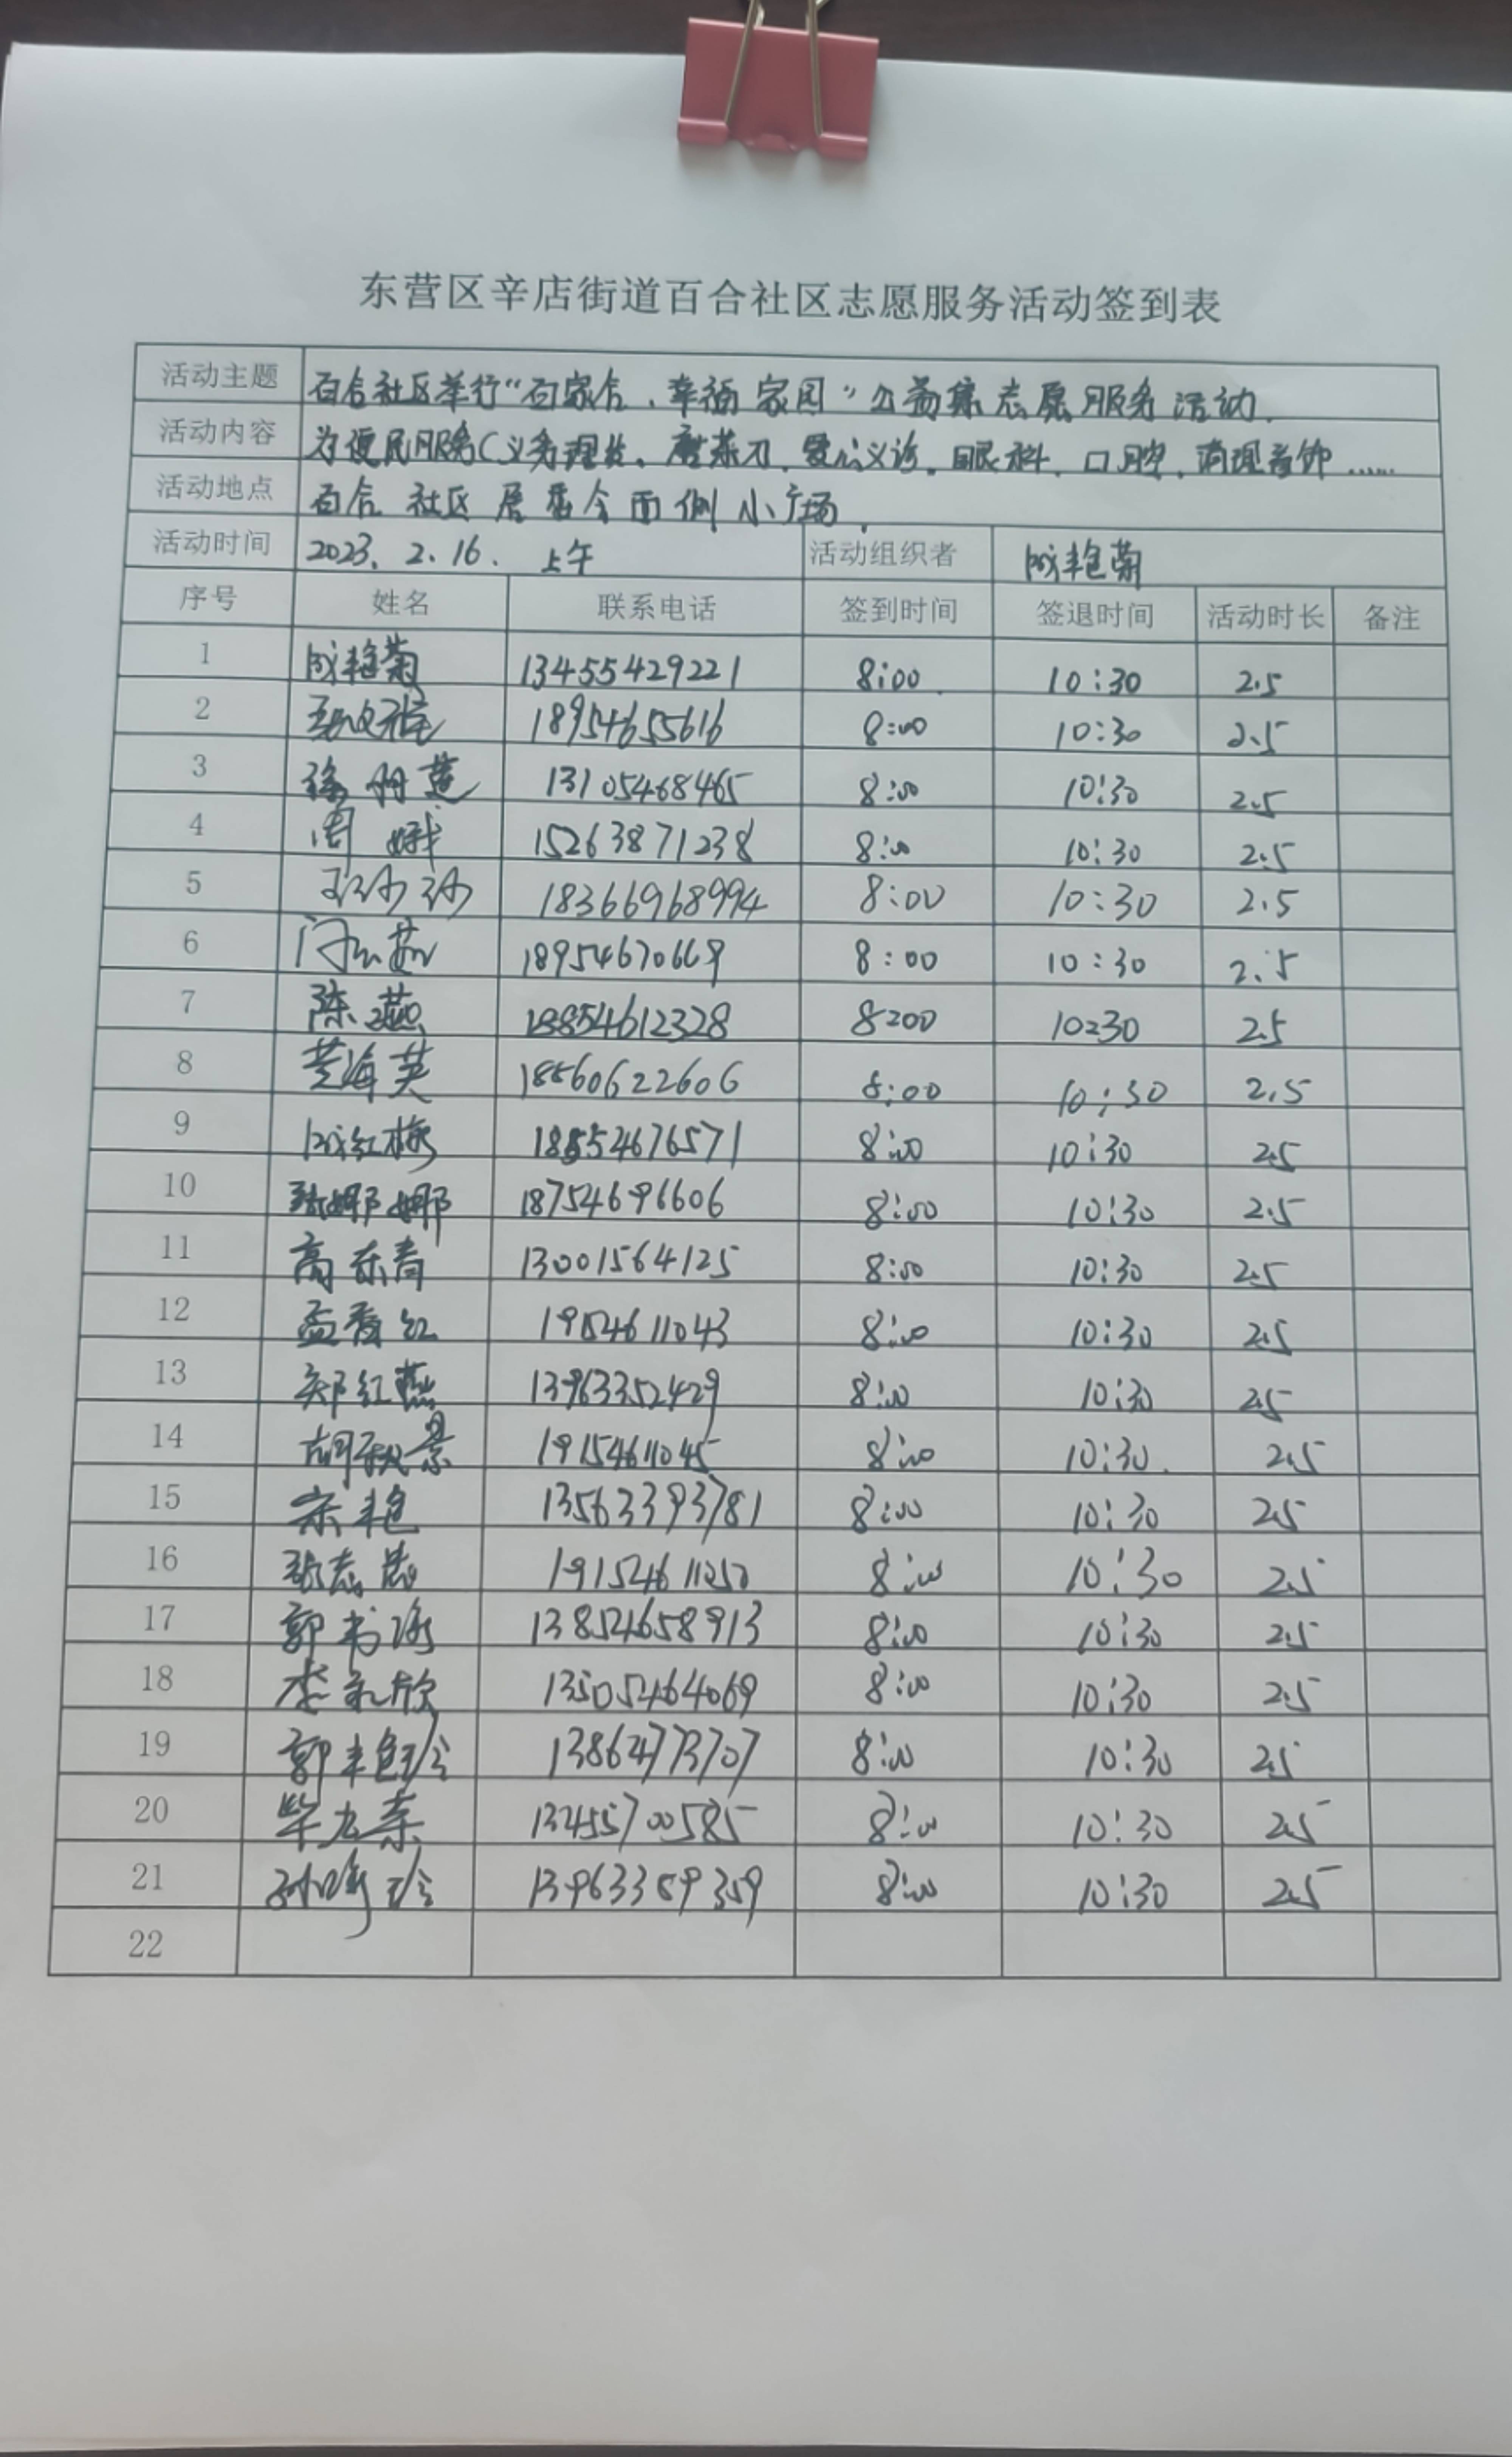 东营区辛店街道百合社区志愿服务活动签到表
活动主题 百合社区举行“百家合、幸福家园”公益集志愿服务活动.
活动内容 为便民服务(义务理发、磨菜刀、义诊、眼科、口腔、清理首饰……
活动地点 百合社区居委会西侧小广场.
活动时间 2023.2.16. 上午 活动组织者 成艳菊
序号 姓名 联系电话 签到时间 签退时间 活动时长 备注
1 成艳菊 13455429221 8:00 10:30 2.5
2 18954655616 8:00 10:30 2.5
3 13105468465 8:00 10:30 2.5
4 周娥 15263871238 8:00 10:30 2.5
5 18366968994 8:00 10:30 2.5
6 8:00 10:30 2.5
7 陈燕 18854612328 8:00 10:30 2.5
8 黄海英 18860622606 8:00 10:30 2.5
9 成红梅 18854676571 8:00 10:30 2.5
10 张娜娜 18754696606 8:00 10:30 2.5
11 高东青 13001564125 8:00 10:30 2.5
12 孟春红 19154611043 8:00 10:30 2.5
13 郑红燕 13963352429 8:00 10:30 2.5
14 胡秋景 19154611045 8:00 10:30. 2.5
15 宋艳 13563393781 8:00 10:30 2.5
16 8:00 10:30 2.5
17 13854658913 8:00 10:30 2.5
18 13505464069 8:00 10:30 2.5
19 郭艳珍 13864773707 8:00 10:30 2.5
20 13455700585 8:00 10:30 2.5
21 13963389359 8:00 10:30 2.5
22